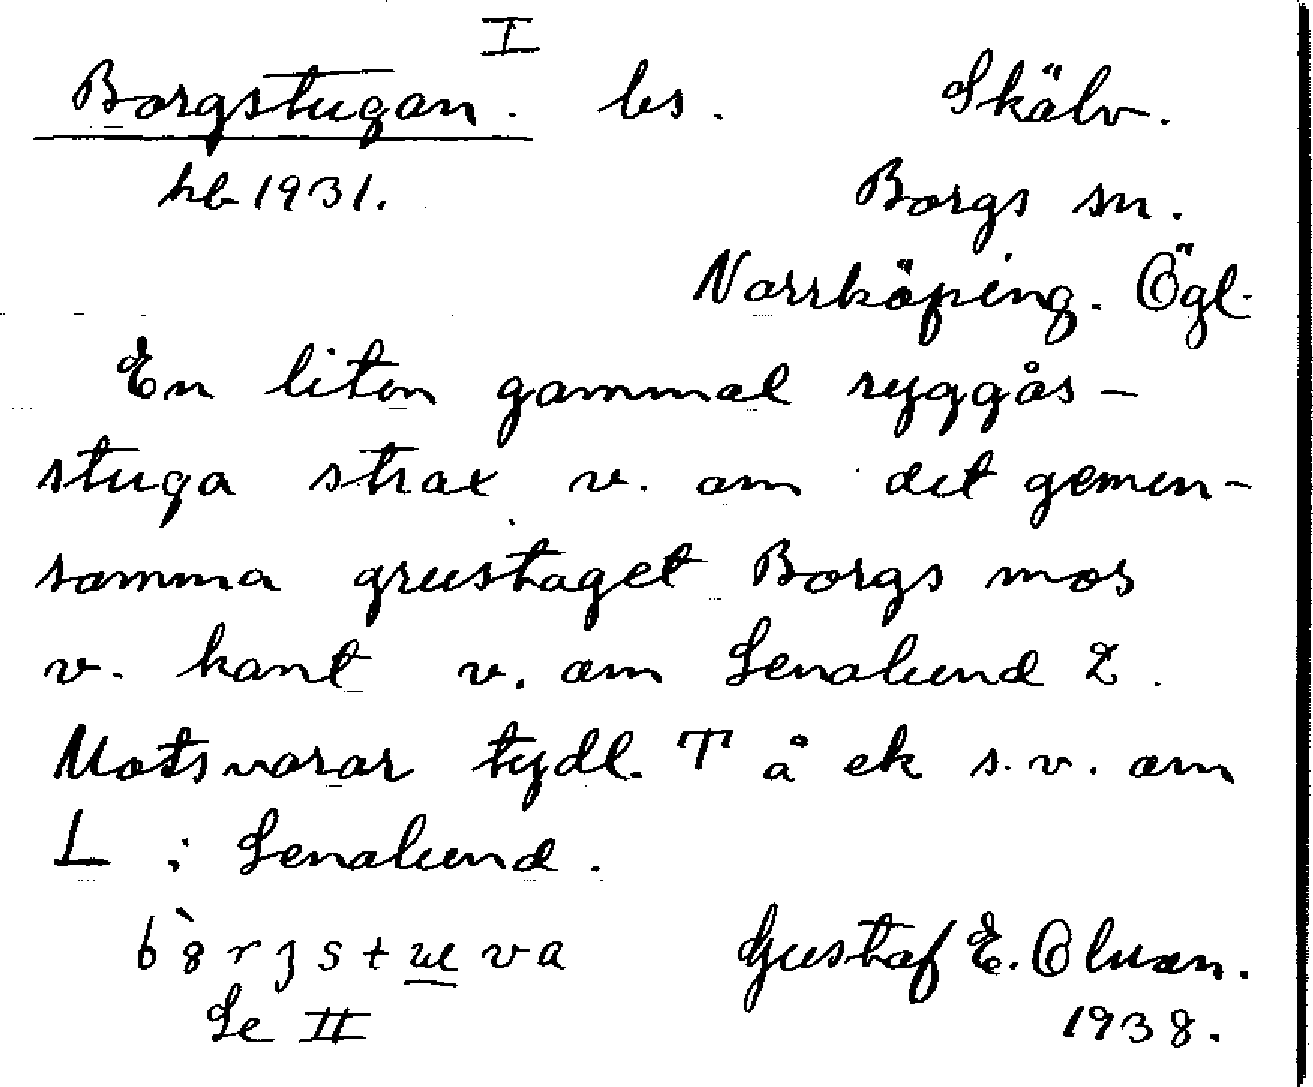 I
Borgstugan. bs. Skälv.
hb 1931. Borgs sn.
Norrköping. Ögl.
En liten gammal ryggås-
stuga strax v. om det gemen-
samma grustaget Borgs mos
v. kant v. om Lenalund 2.
Motsvarar tydl. T å ek s.v. om
L i Lenalund.
Gustaf E. Olsson.
Se II 1938.